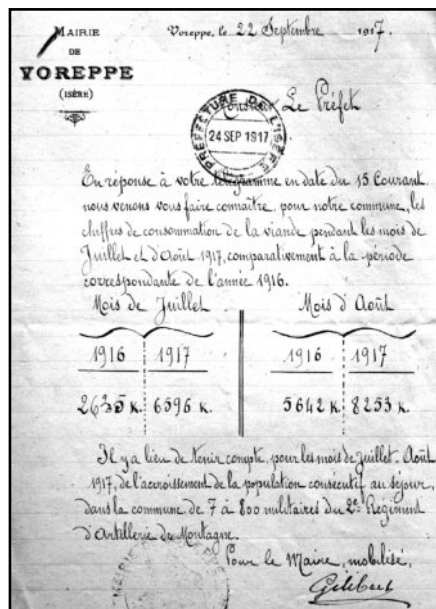 MAIRIE
DE
VOREPPE
(ISÈRE)
Voreppe, le 22 Septembre 1917.
Monsieur Le Préfet
PRÉFECTURE DE L'ISÈRE
24 SEP 1917
En réponse à votre télégramme en date du 15 Courant
nous venons vous faire connaître, pour notre commune, les
chiffres de consommation de la viande pendant les mois de
Juillet et d'Août 1917, comparativement à la période
correspondante de l'année 1916.
Mois de Juillet
1916 1917
2635 K. 6596 K.
Mois d'Août
1916 1917
5642 K. 8253 K.
Il y a lieu de tenir compte, pour les mois de Juillet-Août
1917, de l'accroissement de la population consécutif au séjour,
dans la commune de 7 à 800 militaires du 2e Régiment
d'Artillerie de Montagne.
Pour le Maire, mobilisé,
Gilibert